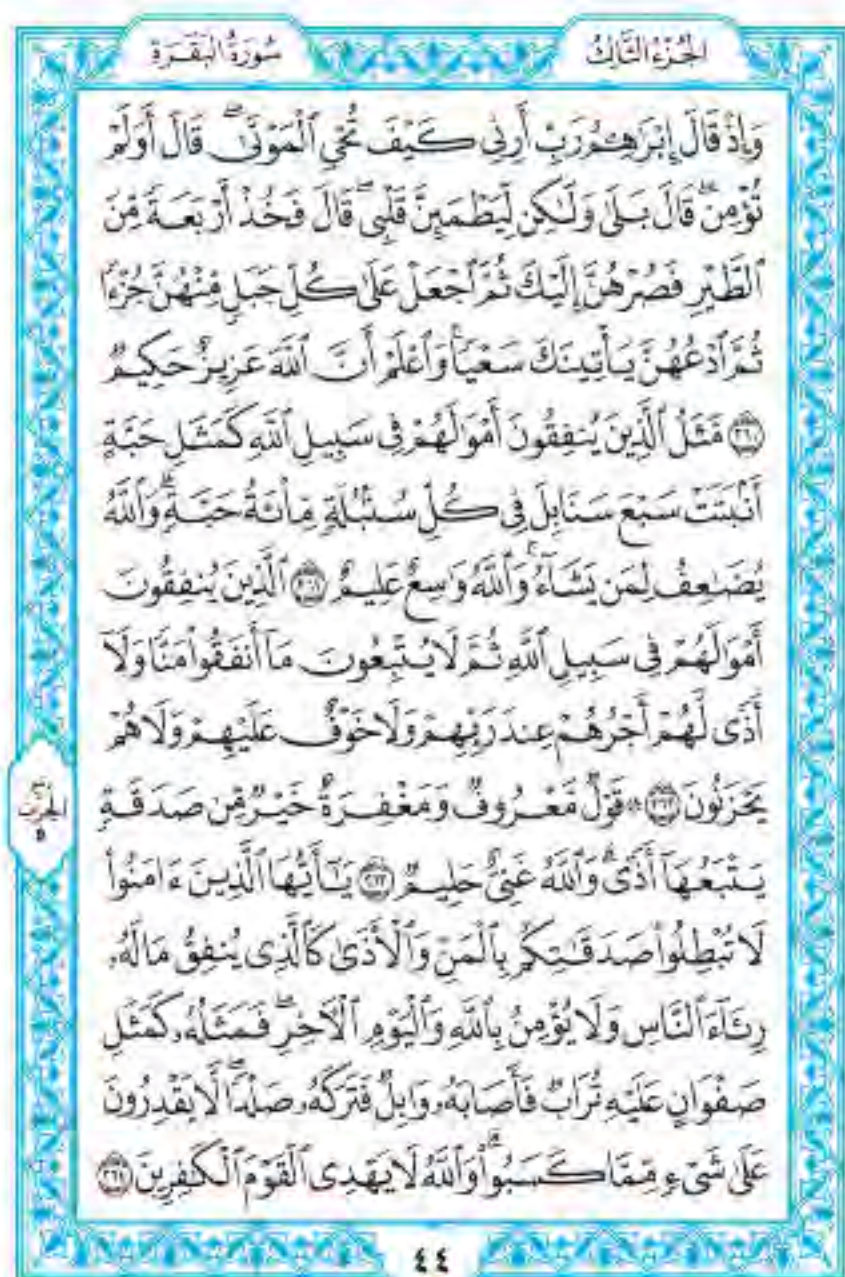 الجزء الثالث
سورة البقرة
وَإِذْ قَالَ إِبْرَٰهِـۧمُ رَبِّ أَرِنِى كَيْفَ تُحْىِ ٱلْمَوْتَىٰ ۖ قَالَ أَوَلَمْ
تُؤْمِن ۖ قَالَ بَلَىٰ وَلَـٰكِن لِّيَطْمَئِنَّ قَلْبِى ۖ قَالَ فَخُذْ أَرْبَعَةً مِّنَ
ٱلطَّيْرِ فَصُرْهُنَّ إِلَيْكَ ثُمَّ ٱجْعَلْ عَلَىٰ كُلِّ جَبَلٍ مِّنْهُنَّ جُزْءًا
ثُمَّ ٱدْعُهُنَّ يَأْتِينَكَ سَعْيًا ۚ وَٱعْلَمْ أَنَّ ٱللَّهَ عَزِيزٌ حَكِيمٌ
﴿٢٦٠﴾ مَّثَلُ ٱلَّذِينَ يُنفِقُونَ أَمْوَٰلَهُمْ فِى سَبِيلِ ٱللَّهِ كَمَثَلِ حَبَّةٍ
أَنۢبَتَتْ سَبْعَ سَنَابِلَ فِى كُلِّ سُنۢبُلَةٍ مِّا۟ئَةُ حَبَّةٍ ۗ وَٱللَّهُ
يُضَـٰعِفُ لِمَن يَشَآءُ ۗ وَٱللَّهُ وَٰسِعٌ عَلِيمٌ ﴿٢٦١﴾ ٱلَّذِينَ يُنفِقُونَ
أَمْوَٰلَهُمْ فِى سَبِيلِ ٱللَّهِ ثُمَّ لَا يُتْبِعُونَ مَآ أَنفَقُوا۟ مَنًّا وَلَآ
أَذًى ۙ لَّهُمْ أَجْرُهُمْ عِندَ رَبِّهِمْ وَلَا خَوْفٌ عَلَيْهِمْ وَلَا هُمْ
يَحْزَنُونَ ﴿٢٦٢﴾ ۞ قَوْلٌ مَّعْرُوفٌ وَمَغْفِرَةٌ خَيْرٌ مِّن صَدَقَةٍ
الحزب
٥
يَتْبَعُهَآ أَذًى ۗ وَٱللَّهُ غَنِىٌّ حَلِيمٌ ﴿٢٦٣﴾ يَـٰٓأَيُّهَا ٱلَّذِينَ ءَامَنُوا۟
لَا تُبْطِلُوا۟ صَدَقَـٰتِكُم بِٱلْمَنِّ وَٱلْأَذَىٰ كَٱلَّذِى يُنفِقُ مَالَهُۥ
رِئَآءَ ٱلنَّاسِ وَلَا يُؤْمِنُ بِٱللَّهِ وَٱلْيَوْمِ ٱلْـَٔاخِرِ ۖ فَمَثَلُهُۥ كَمَثَلِ
صَفْوَانٍ عَلَيْهِ تُرَابٌ فَأَصَابَهُۥ وَابِلٌ فَتَرَكَهُۥ صَلْدًا ۖ لَّا يَقْدِرُونَ
عَلَىٰ شَىْءٍ مِّمَّا كَسَبُوا۟ ۗ وَٱللَّهُ لَا يَهْدِى ٱلْقَوْمَ ٱلْكَـٰفِرِينَ ﴿٢٦٤﴾
٤٤